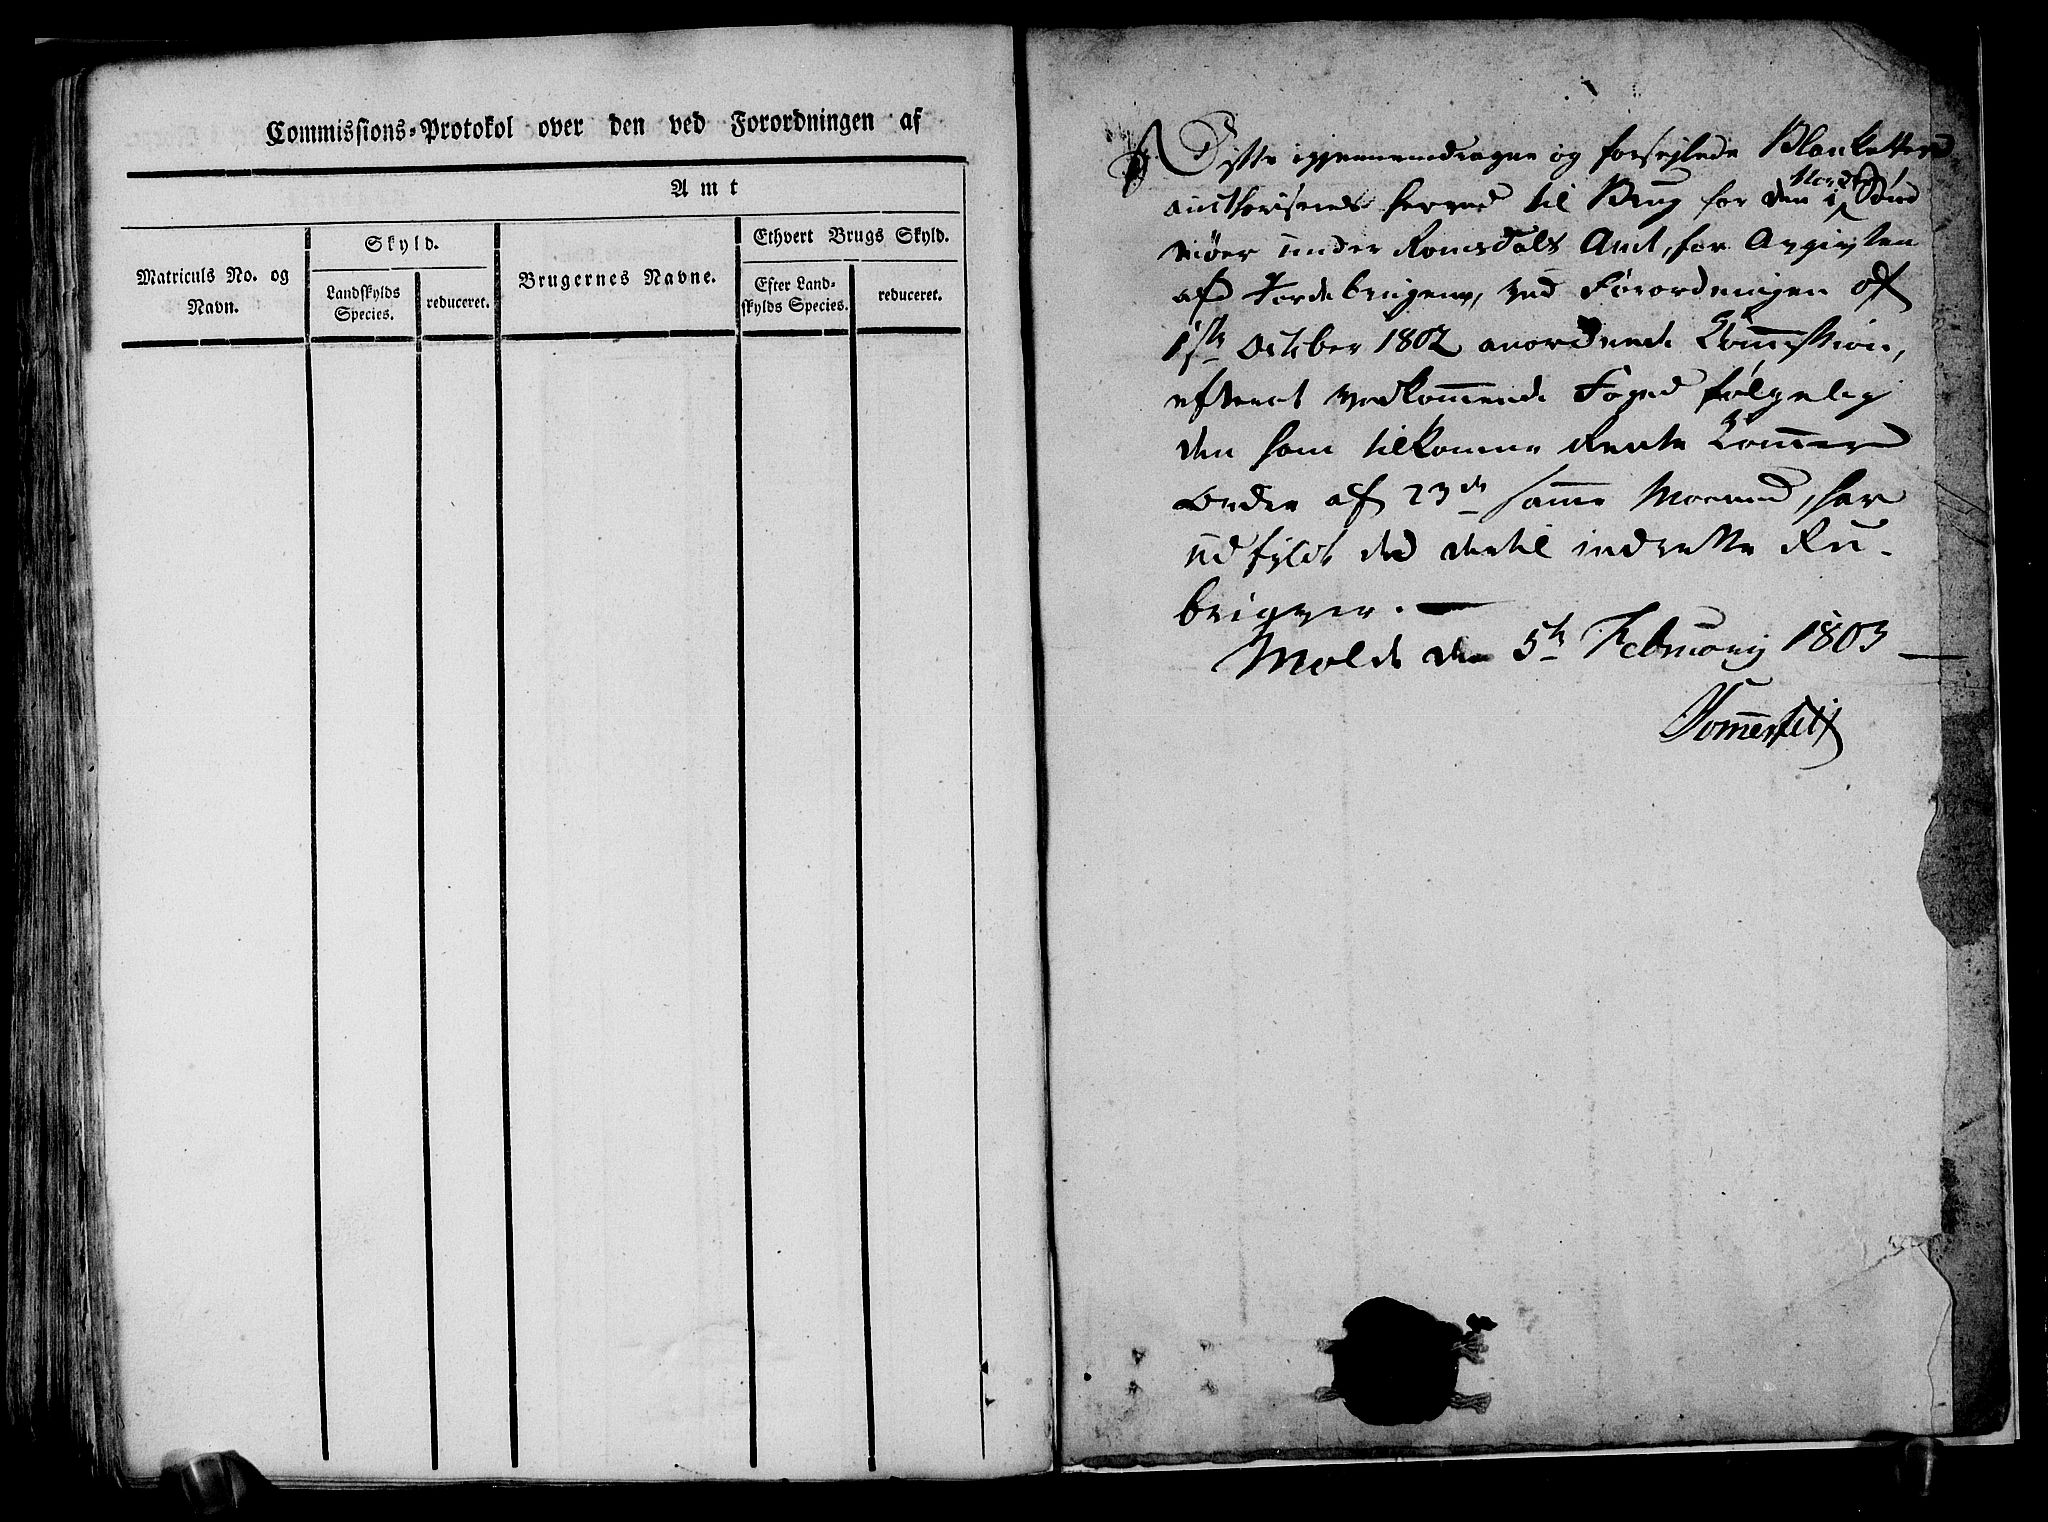 Commissions-Protokol over den ved Forordningen af
Amt
Matriculs No. og
Navn.
Skyld.
Landskylds
Species.
reduceret.
Brugernes Navne.
Ethvert Brugs Skyld.
Efter Land-
skylds Species.
reduceret.
Disse igjennemdragne og forseglede Blanketter
authoriseres herved til Brug for den i Nord
møer under Romsdals Amt, for Avgivten
af Jordebrugene, ved Forordningen af
1ste October 1802 anordnede Commission,
efterat vedkommende Foged følgelig
den ham tilkomne Rente Cammer
Order af 23de samme Maaned, har
udfyldt de dertil indrettede Ru-
briqver.
Molde den 5te February 1803
Sommerfelt